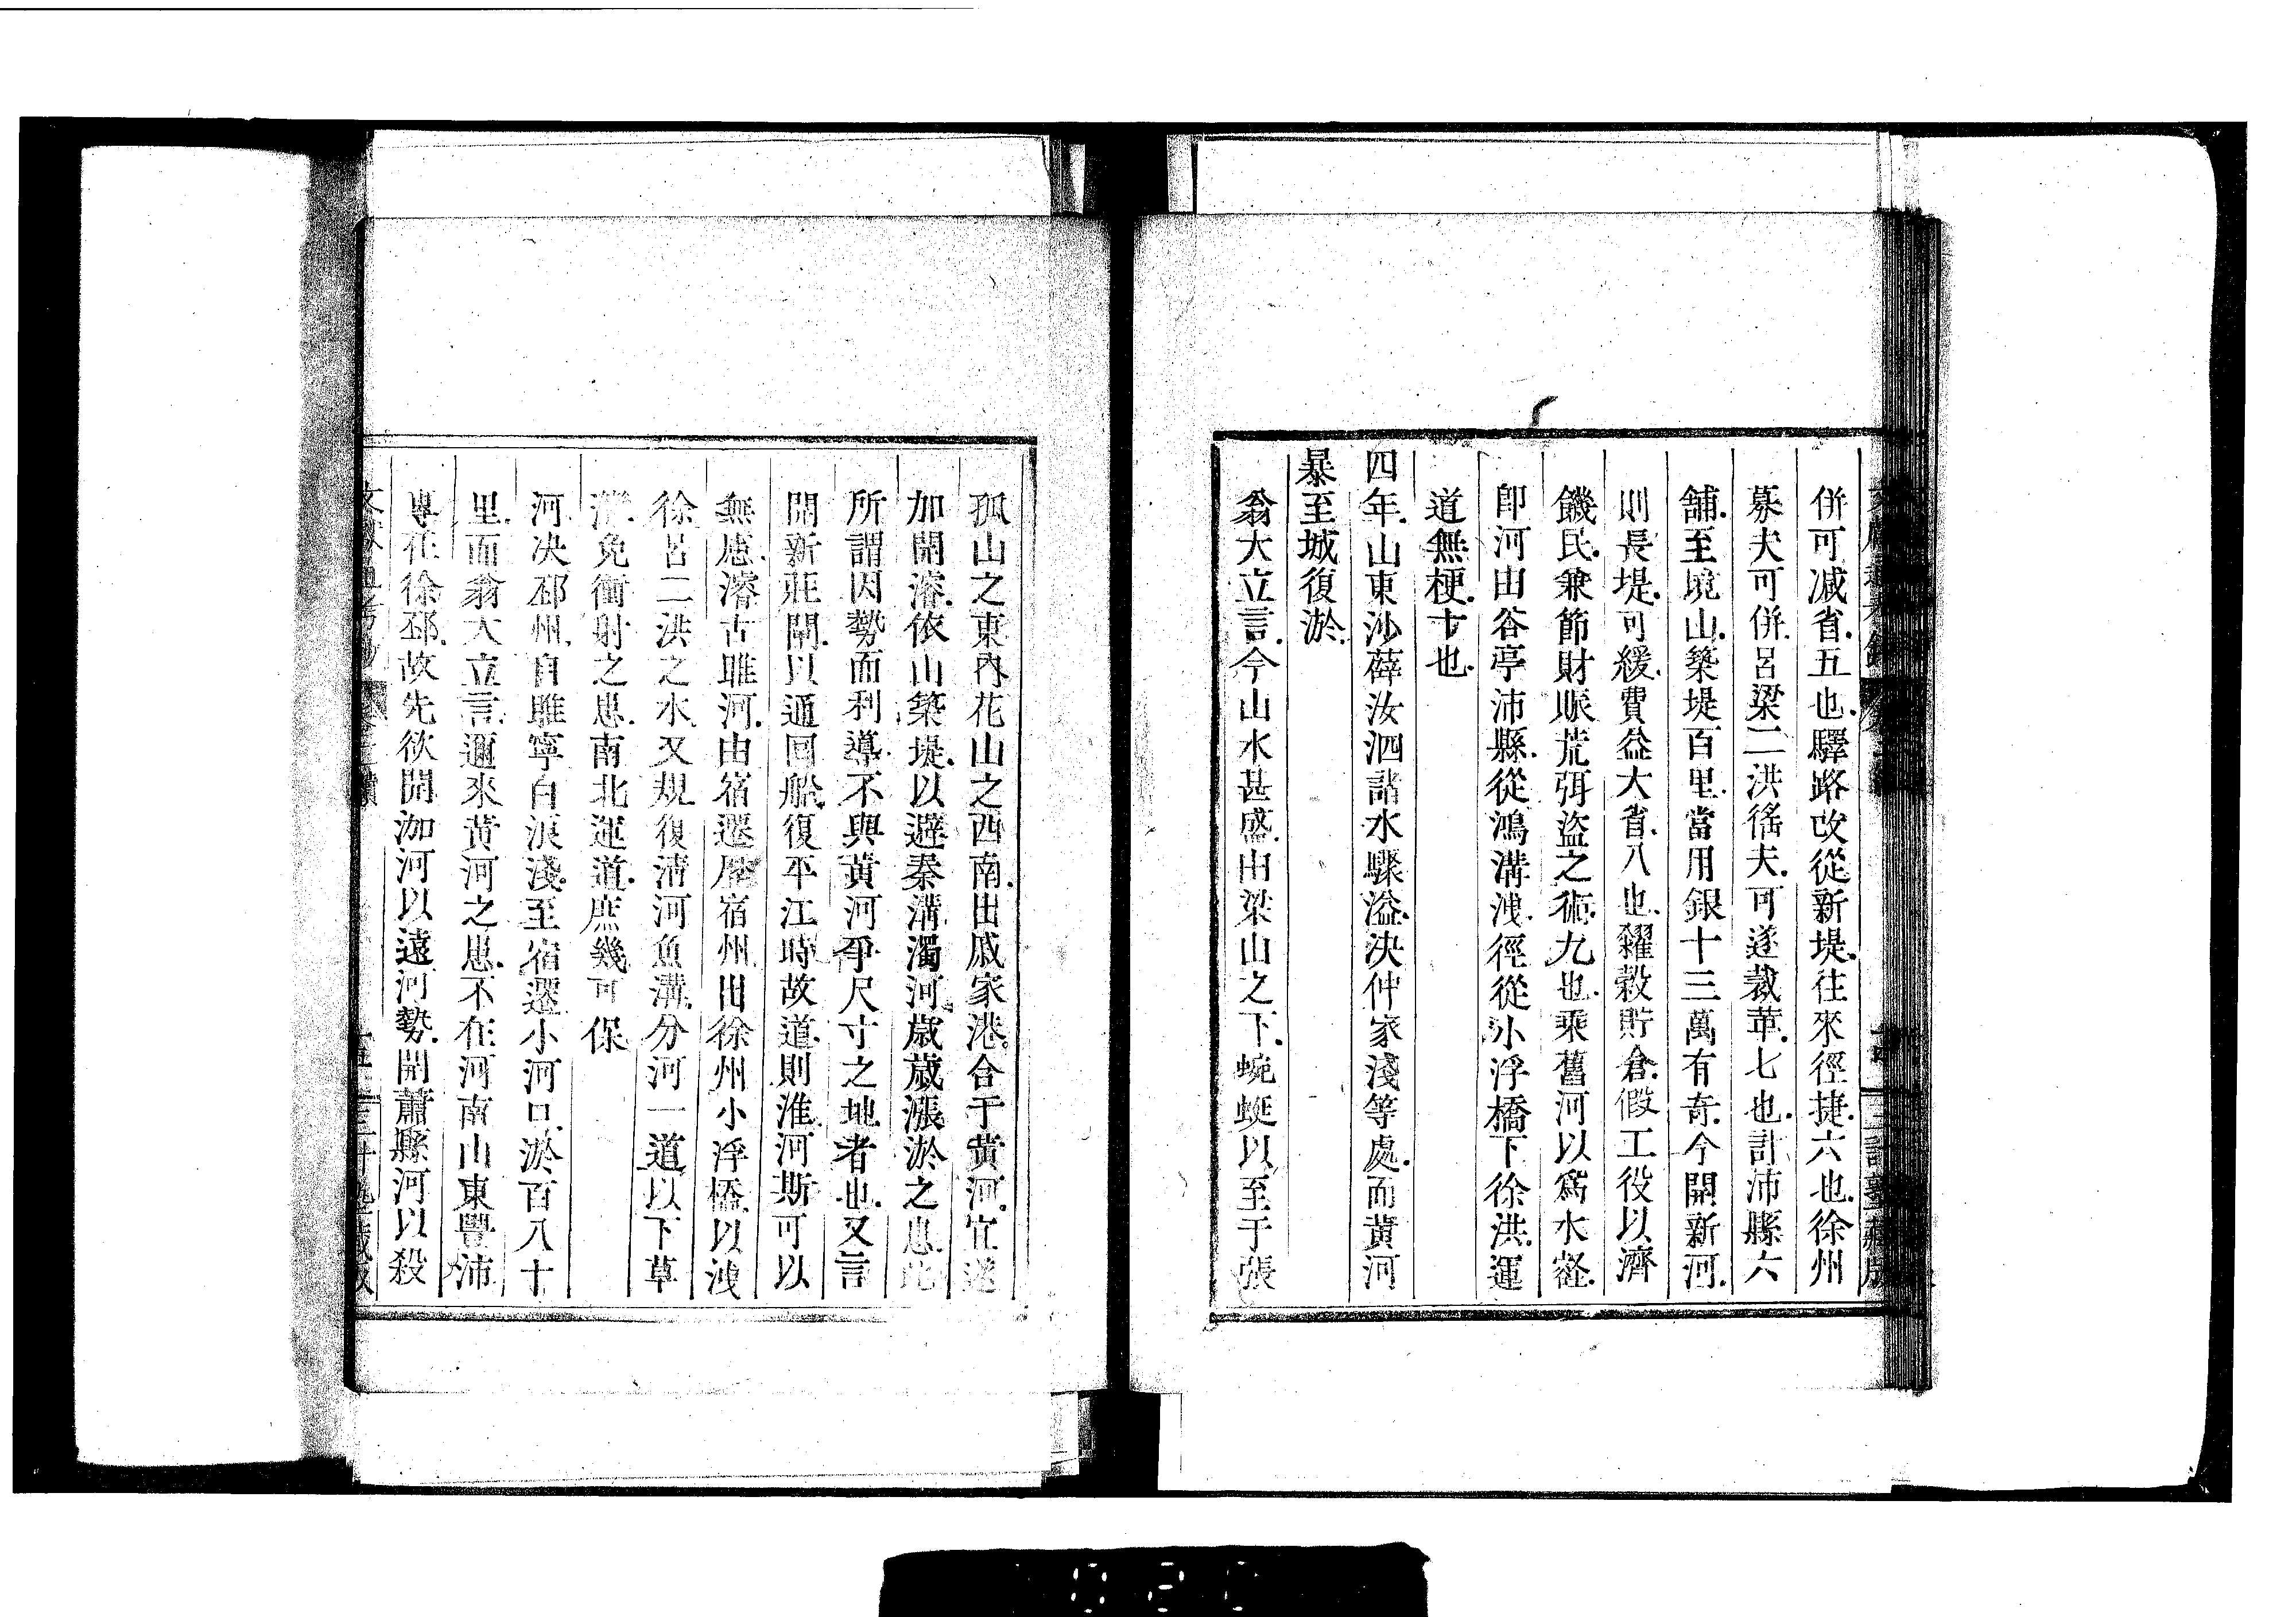 併可減省五也驛路改從新堤往來徑捷六也徐州
募夫可併呂梁二洪徭夫可遂裁革七也計沛縣六
舖至境山築堤百里當用銀十三萬有奇今開新河
則長堤可緩費益大省八也糴穀貯倉假工役以濟
饑民兼節財賑荒弭盜之術九也乘舊河以爲水壑
卽河由谷亭沛縣從鴻溝洩徑從小浮橋下徐洪運
道無梗十也
四年山東沙薛汶泗諸水驟溢決仲家淺等處而黃河
暴至城復淤
翁大立言今山水甚盛由梁山之下蜿蜒以至于張
孤山之東內花山之西南出戚家港合于黃河宜遂
加開濬依山築堤以避秦溝濁河歲歲漲淤之患此
所謂因勢而利導不與黃河爭尺寸之地者也又言
開新莊閘以通回船復平江時故道則淮河斯可以
無慮濬古睢河由宿遷歷宿州出徐州小浮橋以洩
徐呂二洪之水又規復淸河魚溝分河一道以下草
灣免衝射之患南北運道庶幾可保
河決邳州自睢寧白浪淺至宿遷小河口淤百八十
里而翁大立言邇來黃河之患不在河南山東豐沛
專在徐邳故先欲開泇河以遠河勢開蕭縣河以殺